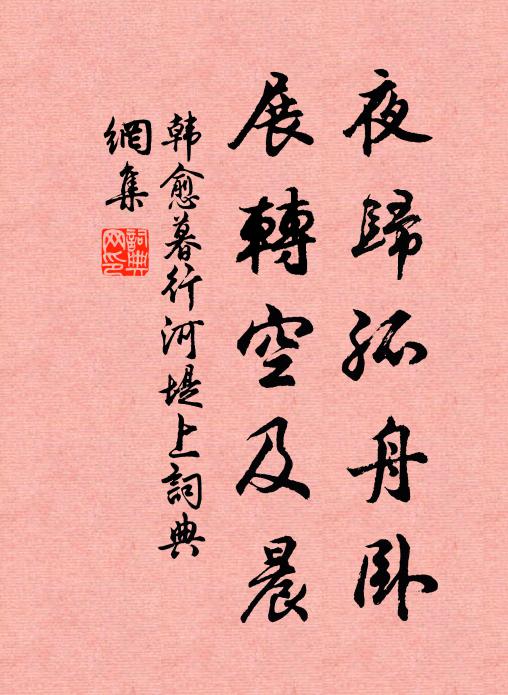 夜歸孤舟卧
展轉空及晨
韩愈暮行河堤上詞典
網集
詞典
网印